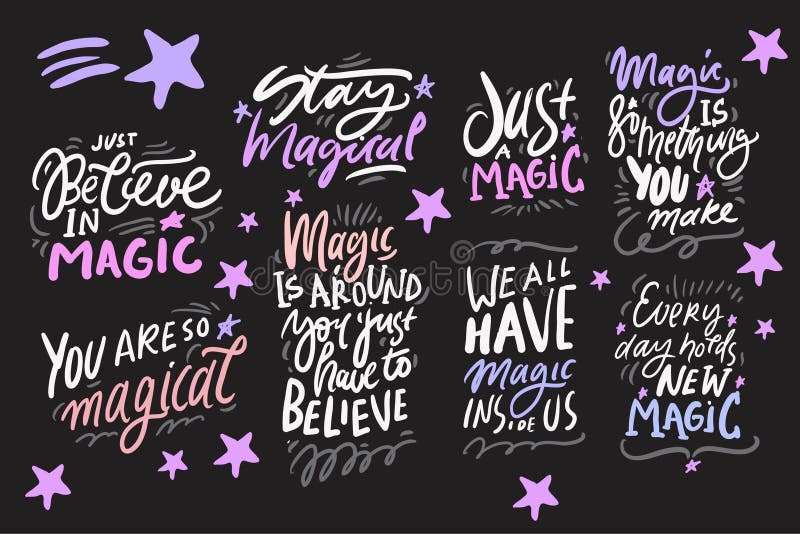 JUST
Believe
IN
MAGIC
Stay
Magical
JUST
A
MAGIC
Magic
IS
something
YOU
make
YOU ARE SO
magical
Magic
IS AROUND
you just
have to
BELIEVE
WE ALL
HAVE
magic
INSIDE US
Every
day holds
NEW
MAGIC
dreamstime